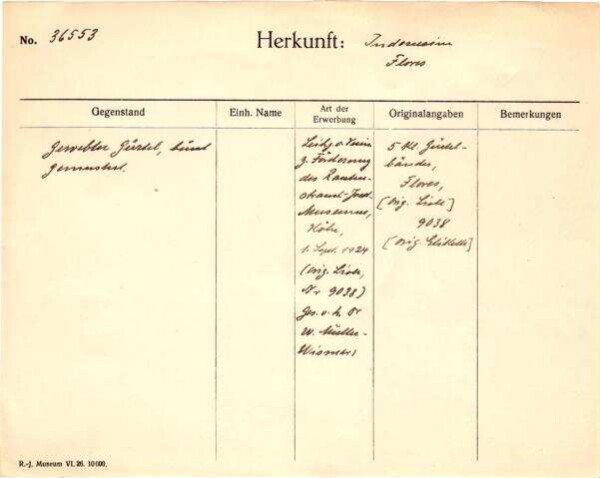 No. 36553
Herkunft: Indonesien
Flores
Gegenstand
Einh. Name
Art der Erwerbung
Originalangaben
Bemerkungen
Gewebter Gürtel, bunt
gemustert.
Leihg. v. Verein
z. Förderung
des Rauten-
strauch-Joest-
Museums,
Köln,
1. Sept. 1924
(Orig. Liste,
Nr 9038)
Ges. v. h. Dr
W. Müller-
Wismar)
5 Kl. Gürtel-
bänder,
Flores,
[Orig. Liste]
9038
[Orig. Etikette]
R.-J. Museum VI. 26. 10000.